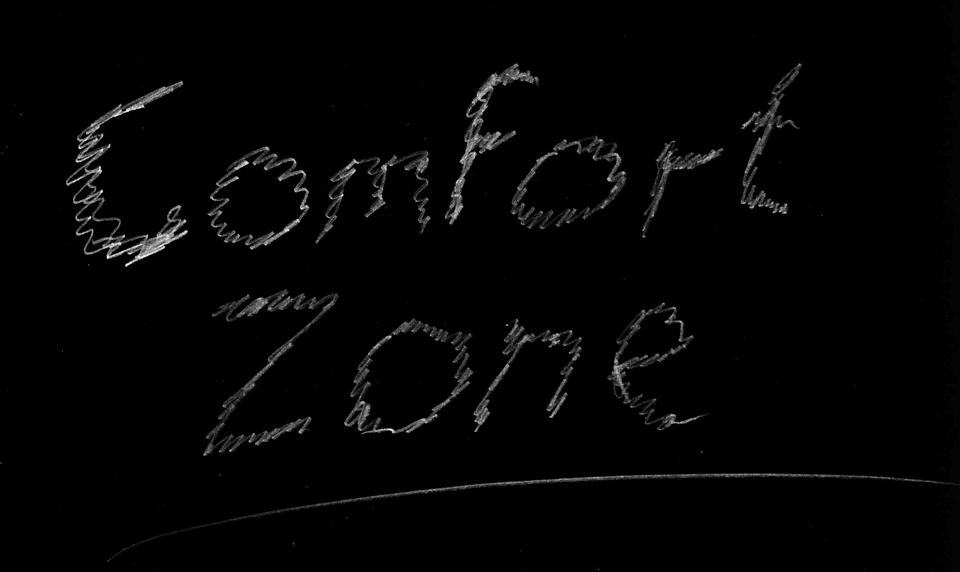 Comfort
Zone